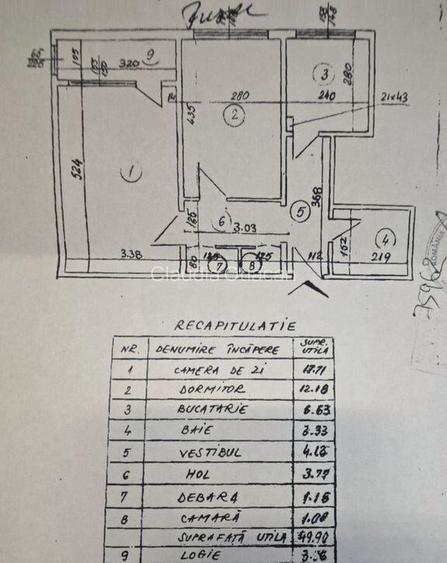 9
320
3
280
280
240
21x43
2
435
1
524
368
5
6
3.03
4
3.38
7
8
112
152
219
RECAPITULATIE
NR. DENUMIRE ÎNCĂPERE SUPR. UTILĂ
1 CAMERA DE ZI 17.71
2 DORMITOR 12.18
3 BUCATARIE 6.63
4 BAIE 3.33
5 VESTIBUL 4.12
6 HOL 3.77
7 DEBARA 1.15
8 CAMARĂ
SUPRAFAȚĂ UTILĂ 49.90
9 LOGIE